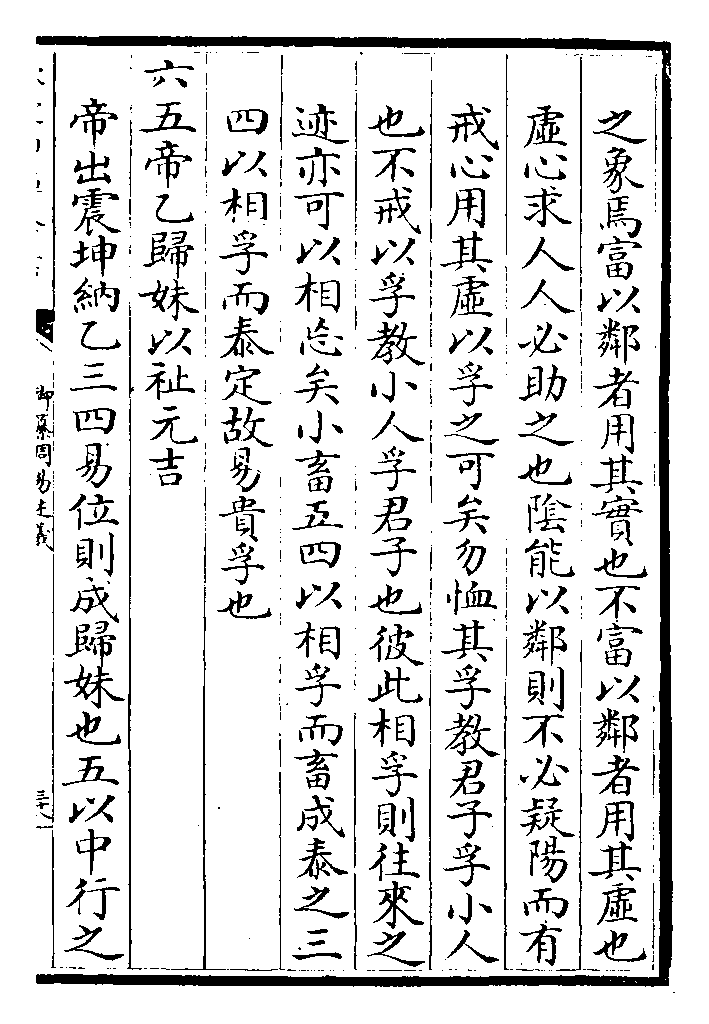 之象焉富以鄰者用其實也不富以鄰者用其虛也
虛心求人人必助之也陰能以鄰則不必疑陽而有
戒心用其虛以孚之可矣勿恤其孚教君子孚小人
也不戒以孚教小人孚君子也彼此相孚則往來之
迹亦可以相忘矣小畜五四以相孚而畜成泰之三
四以相孚而泰定故易貴孚也
六五帝乙歸妹以祉元吉
帝出震坤納乙三四易位則成歸妹也五以中行之
御纂周易述義